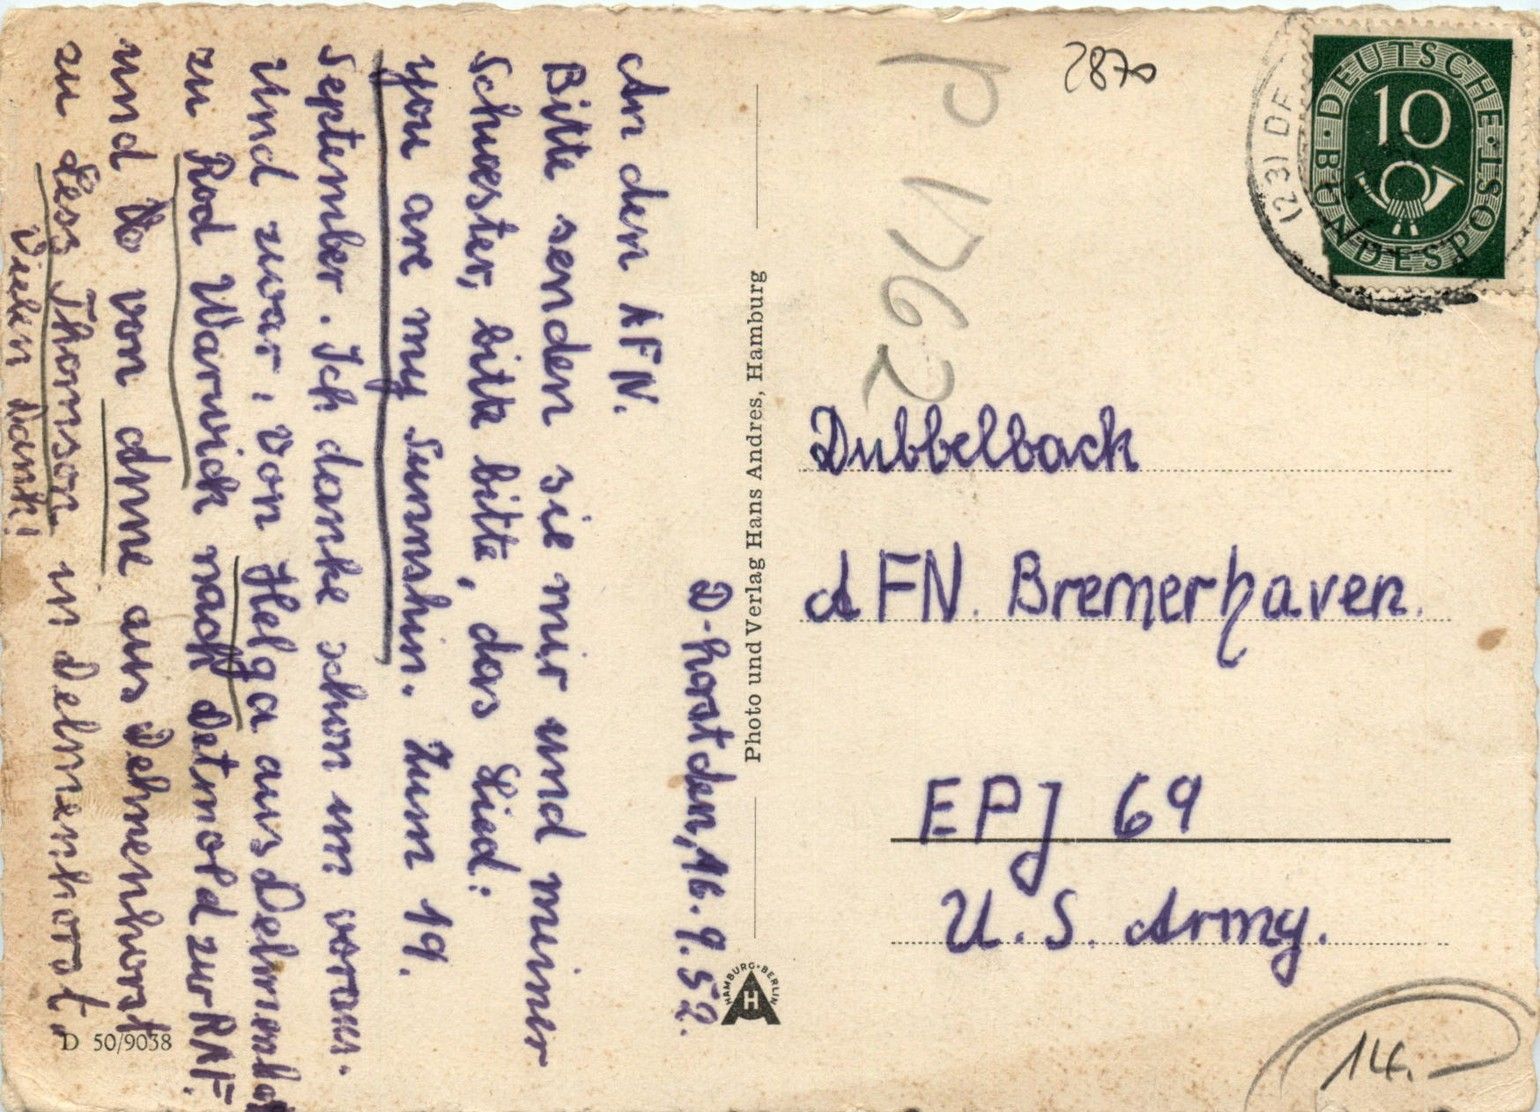 D-horst den, 16. 9. 52.
An den AFN.
Bitte senden sie mir und meiner
Schwester, bitte bitte, das Lied:
you are my Sunnshin. Zum 19.
September. Ich danke schon im voraus.
Und zwar: von Helga aus Delmenhorst
zu Rod Warwick nach Detmold zur RAF.
und von Anne aus Dehnenhorst
zu Less Thomson in Delmenhorst.
Vielen Dank!
D 50/9038
Photo und Verlag Hans Andres, Hamburg
HAMBURG·BERLIN
H
P 1762
2870
DEUTSCHE BUNDESPOST
10
(23) DE
Dubbelback
AFN. Bremerhaven.
EPJ 69
U. S. Army.
14.-